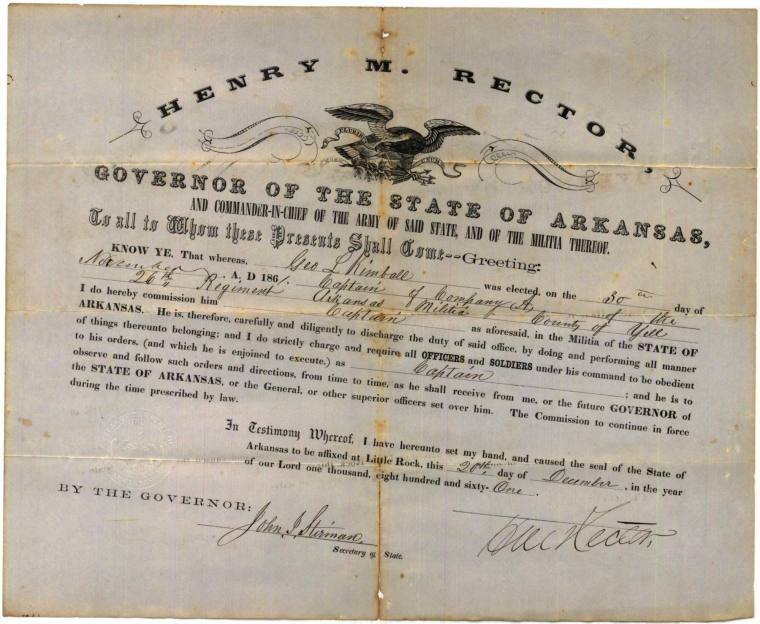 HENRY M. RECTOR,
E PLURIBUS UNUM
GOVERNOR OF THE STATE OF ARKANSAS,
AND COMMANDER-IN-CHIEF OF THE ARMY OF SAID STATE, AND OF THE MILITIA THEREOF.
To all to Whom these Presents Shall Come--Greeting:
KNOW YE, That whereas, Geo L Kimball was elected, on the 30th day of
November, A, D 1861. Captain of Company A, of the
26th Regiment Arkansas Militia County of Yell
I do hereby commission him Captain as aforesaid, in the Militia of the STATE OF
ARKANSAS. He is, therefore, carefully and diligently to discharge the duty of said office, by doing and performing all manner
of things thereunto belonging; and I do strictly charge and require all OFFICERS and SOLDIERS under his command to be obedient
to his orders, (and which he is enjoined to execute,) as Captain ; and he is to
observe and follow such orders and directions, from time to time, as he shall receive from me, or the future GOVERNOR of
the STATE OF ARKANSAS, or the General, or other superior officers set over him. The Commission to continue in force
during the time prescribed by law.
In Testimony Whereof, I have hereunto set my hand, and caused the seal of the State of
Arkansas to be affixed at Little Rock, this 20th day of December, in the year
of our Lord one thousand, eight hundred and sixty-One.
BY THE GOVERNOR:
John I. Stirman,
Secretary of State.
Rector